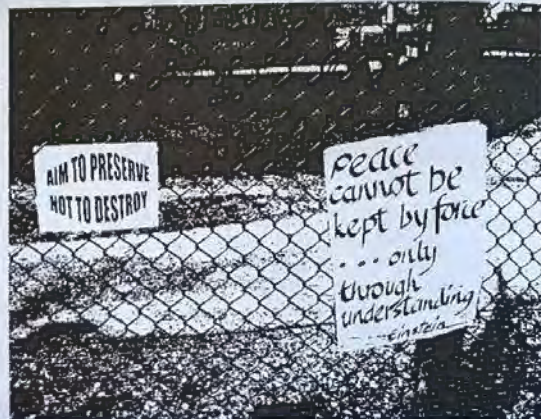 AIM TO PRESERVE
NOT TO DESTROY
Peace
cannot be
kept by force
. . . only
through
understanding
--- Einstein